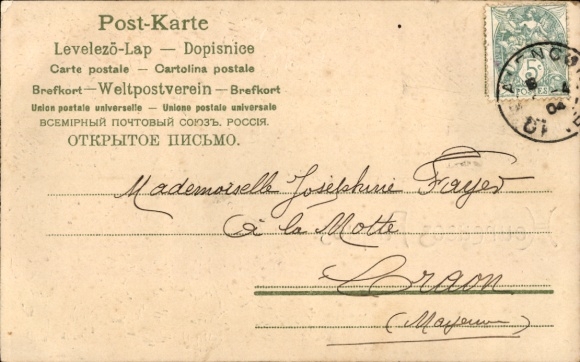 Post-Karte
Levelező-Lap — Dopisnice
Carte postale — Cartolina postale
Brefkort—Weltpostverein—Brefkort
Union postale universelle — Unione postale universale
ВСЕМІРНЫЙ ПОЧТОВЫЙ СОЮЗЪ. РОССІЯ.
ОТКРЫТОЕ ПИСЬМО.
5c
POSTES
04
Mademoiselle Joséphine Fayer
à la Motte
Craon
(Mayenne)